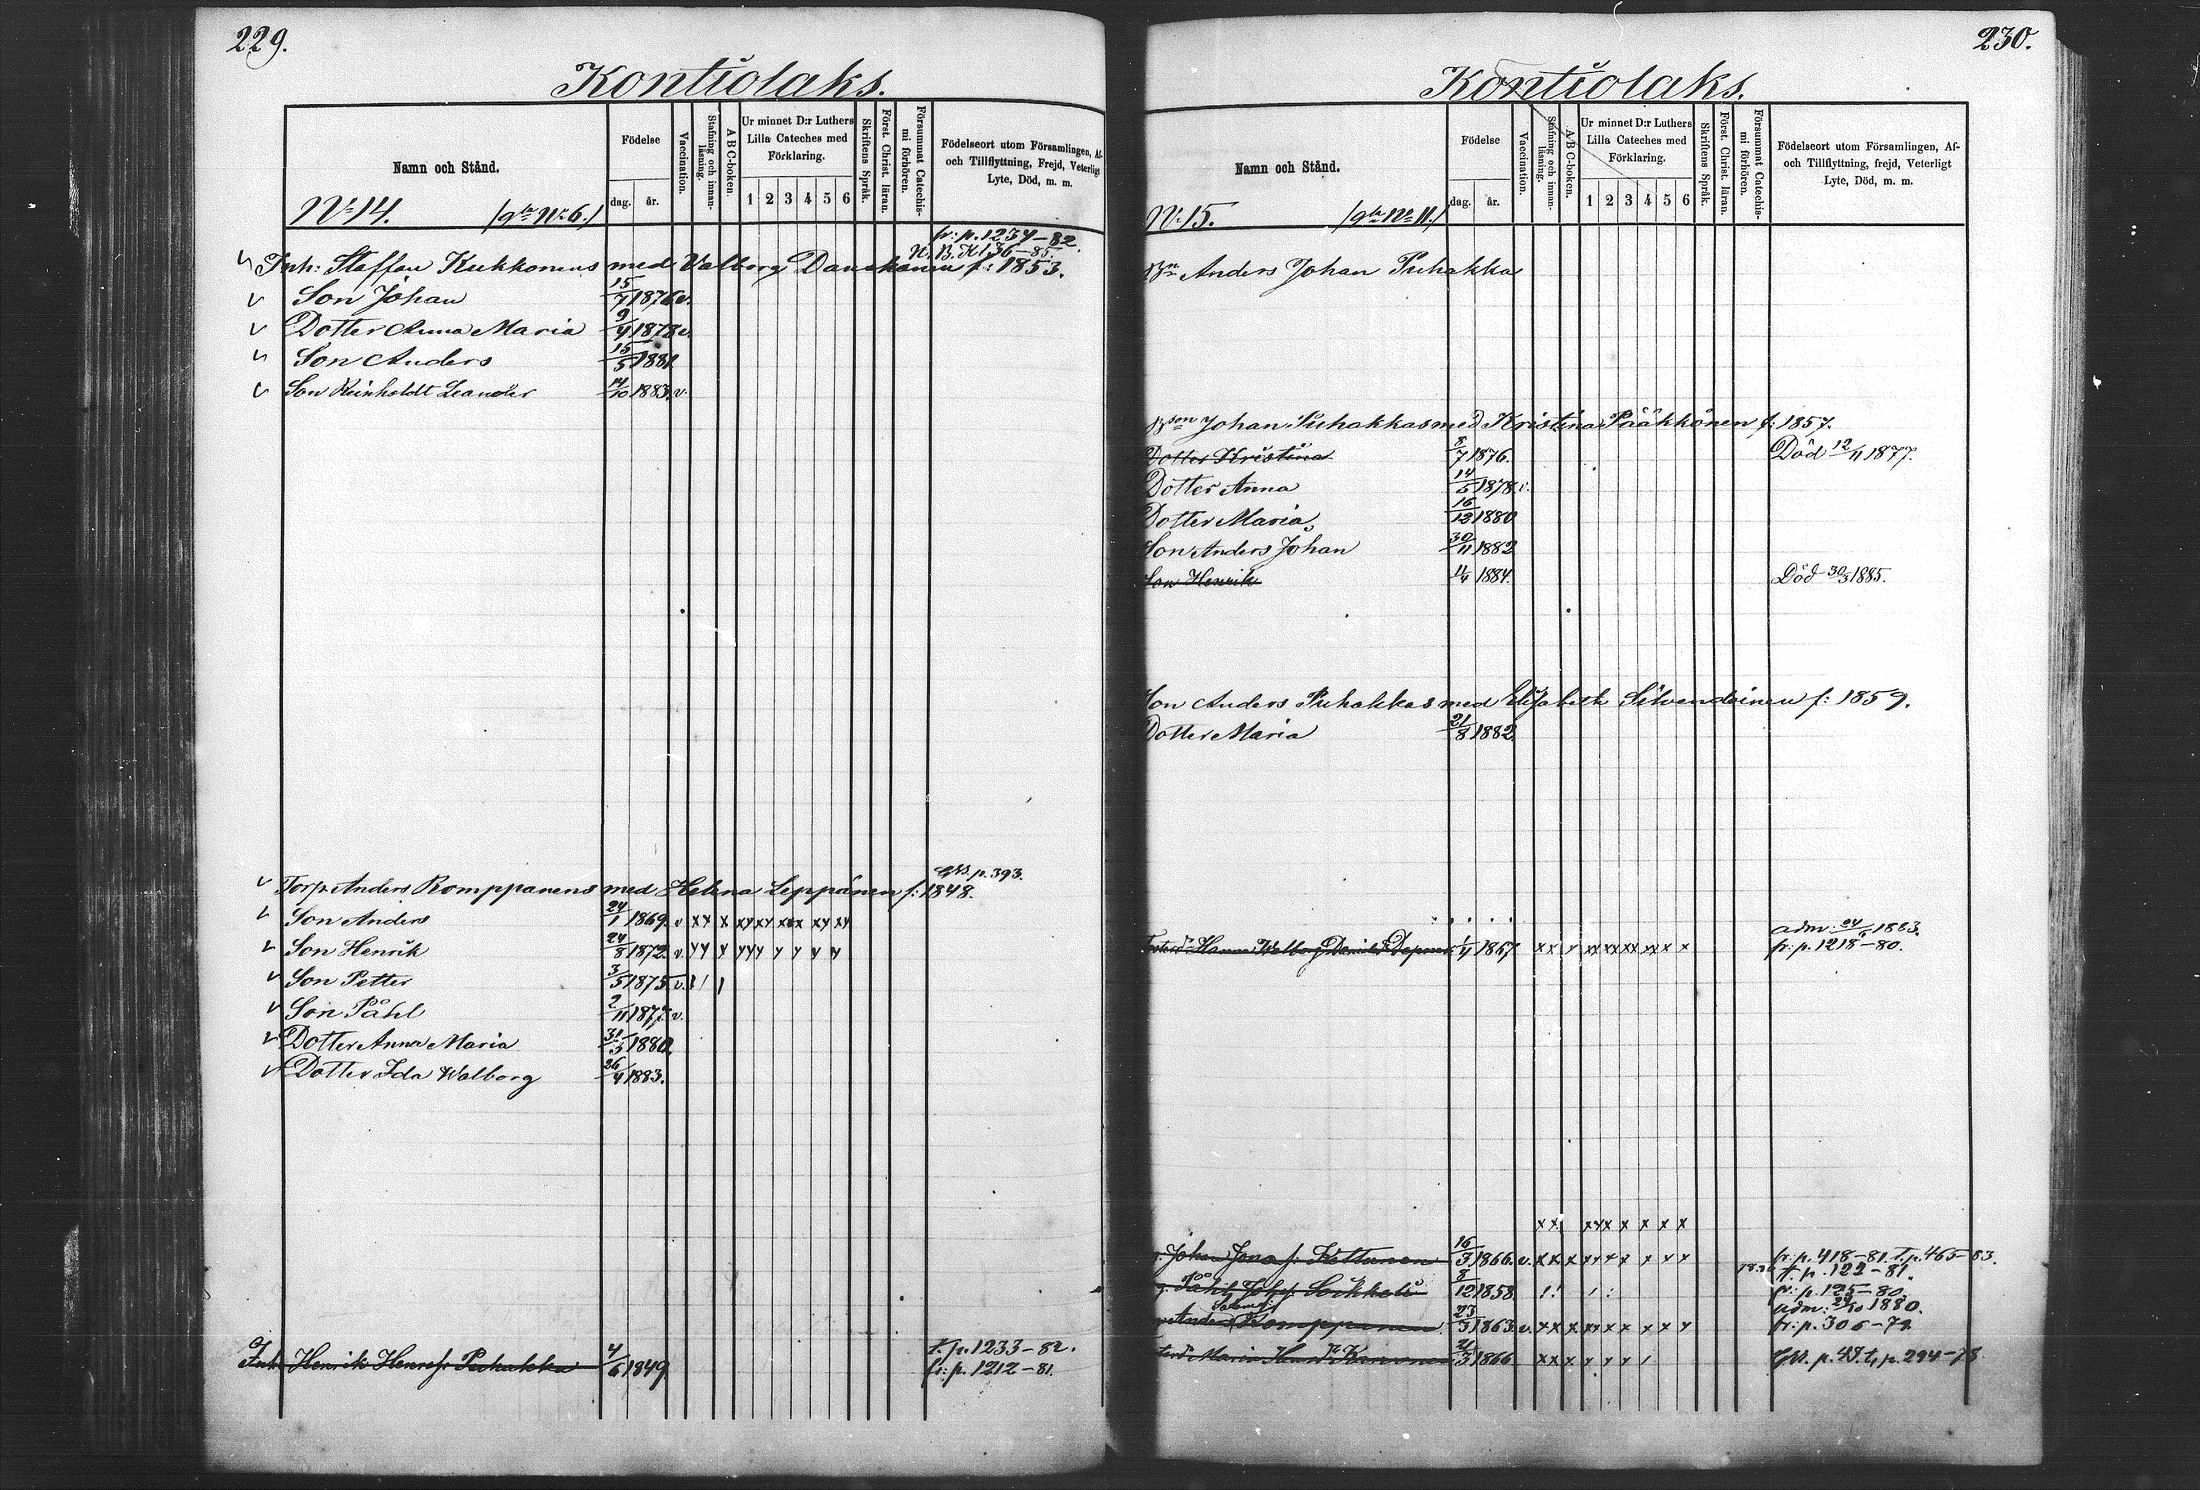 229.
Kontiolaks.
Namn och Stånd.
Födelse
dag. år.
Vaccination.
Stafning och innan-läsning.
A B C-boken.
Ur minnet D:r Luthers Lilla Cateches med Förklaring.
1 2 3 4 5 6
Skriftens Språk.
Först. Christ. läran.
Försummat Catechis-mi förhören.
Födelseort utom Församlingen, Af-
och Tillflyttning, Frejd, Veterligt
Lyte, Död, m. m.
No 14. /gla No 6./
fr: p. 1237-82.
Inh: Staffan Kukkonens med Valborg f: 1853.
Son Johan 15/7 1876 v.
Dotter Anna Maria 9/4 1878 v.
Son Anders 15/5 1881
Son Reinholdt Leander 14/10 1883. v.
p. 393.
Torp. Anders Romppanens med Helena Leppänen f: 1848.
Son Anders 24/1 1869. v
Son Henrik 24/8 1872. v.
Son Petter 3/5 1875 v.
Son Påhl 2/11 1877. v.
Dotter Anna Maria 31/3 1880
Dotter Ida Walborg 26/4 1883.
t. p. 1233-82.
Inh: Henrik Henrsf. Puhakka 4/6 1849 fr: p. 1212-81.
230.
Kontiolaks.
Namn och Stånd.
Födelse
dag. år.
Vaccination.
Stafning och innan-läsning.
A B C-boken.
Ur minnet D:r Luthers Lilla Cateches med Förklaring.
1 2 3 4 5 6
Skriftens Språk.
Först. Christ. läran.
Försummat Catechis-mi förhören.
Födelseort utom Församlingen, Af-
och Tillflyttning, frejd, Veterligt
Lyte, Död, m. m.
No 15. /gla No 11./
Anders Johan Puhakka
son Johan Puhakkas med Kristina Pääkkönen f: 1857.
Dotter Kristina 8/7 1876. Död 12/11 1877.
Dotter Anna 14/5 1878. v.
Dotter Maria 16/12 1880
Son Anders Johan 30/11 1882
Son Henrik 1884. Död 30/3 1885.
Son Anders Puhakkas med Elisabeth Silvendoinen f: 1859.
Dotter Maria 21/8 1882
adm: 1883.
Hanna Walborg 1/4 1867 fr: p. 1218-80.
Johan Jonasf. Kettunen 16/3 1866. v. fr. p. 418-81. t. p. 465-83.
t. p. 122-81.
Påhl Johsf. Sikkoli 3/12 1858 fr: p. 125-80.
adm: 1880.
Anders Romppanen 23/3 1863 v. fr: p. 306-79.
Maria 21/3 1866 p. 48. t, p. 294-78